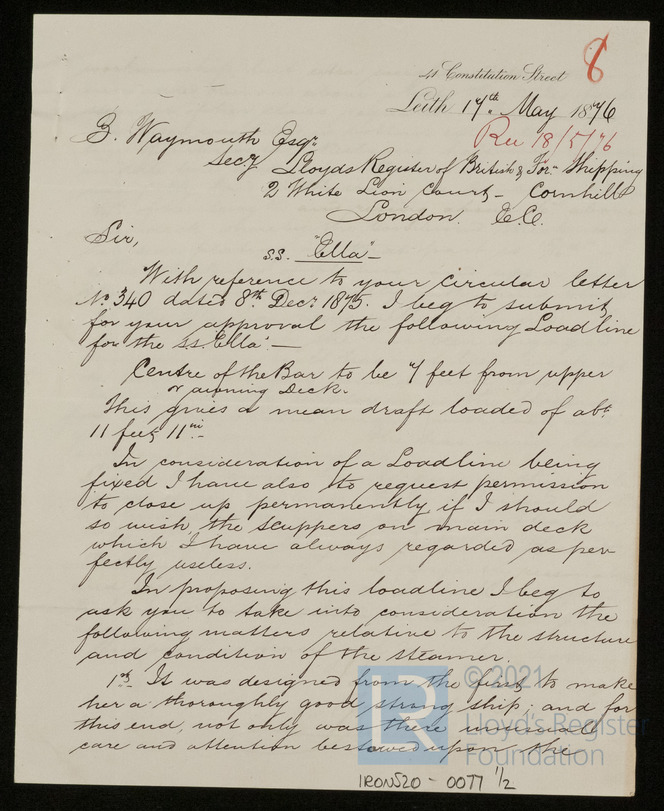 8
41 Constitution Street
Leith 17th May 1876
Rec 18/5/76
B. Waymouth Esqr
Secy Lloyds Register of British & For. Shipping
2 White Lion Court - Cornhill
London. E.C.
Sir,
s.s. "Ella" -
With reference to your circular letter
No 340 dated 8th Decr 1875. I beg to submit
for your approval the following Loadline
for the s.s. Ella: -
Centre of the Bar to be 7 feet from upper
or awning Deck.
This gives a mean draft loaded of abt
11 feet 11 in -
In consideration of a Loadline being
fixed I have also to request permission
to close up permanently if I should
so wish the scuppers on main deck
which I have always regarded as per-
fectly useless.
In proposing this loadline I beg to
ask you to take into consideration the
following matters relative to the structure
and condition of the steamer.
1st It was designed from the first to make
her a thoroughly good strong ship; and for
this end, not only was there unusual
care and attention bestowed upon the
© 2021
Lloyd's Register
Foundation
IRON520 - 0077 1/2